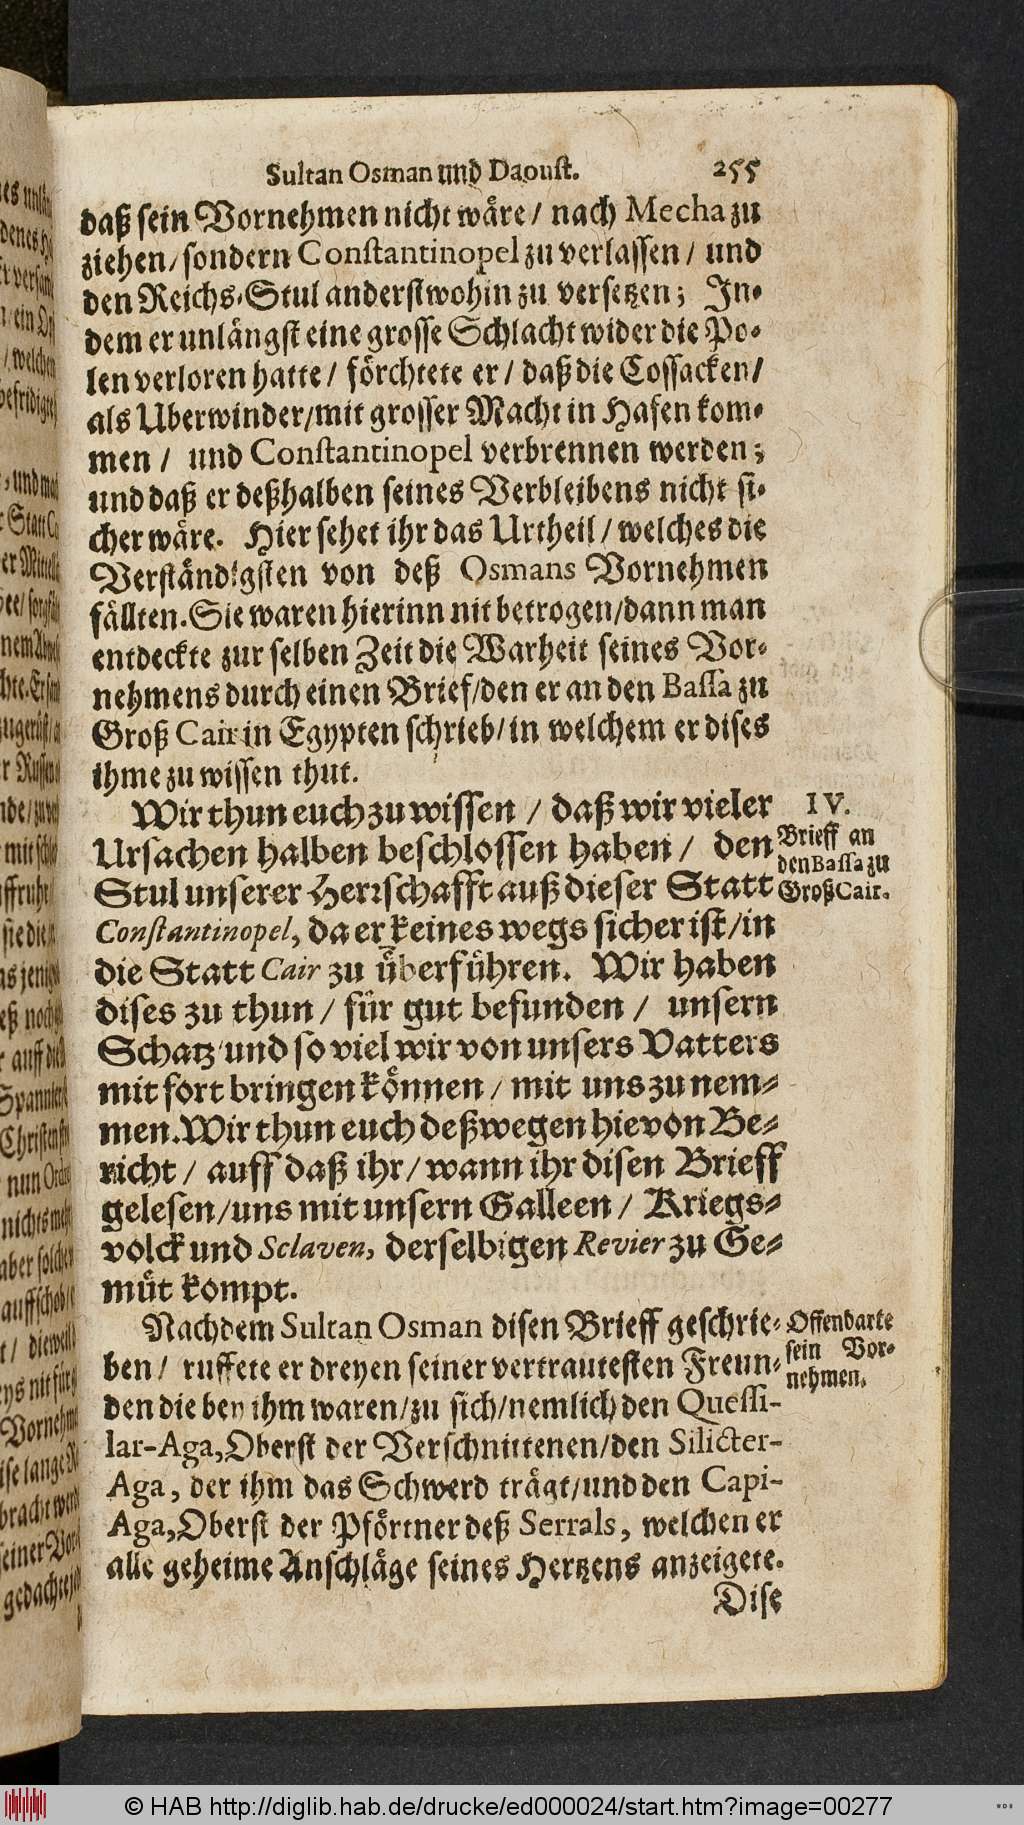 Sultan Osman und Daoust. 255
daß sein Vornehmen nicht wäre / nach Mecha zu
ziehen / sondern Constantinopel zu verlassen / und
den Reichs-Stul anderstwohin zu versetzen; In-
dem er unlängst eine grosse Schlacht wider die Po-
len verloren hatte / förchtete er / daß die Cossacken /
als Uberwinder / mit grosser Macht in Hafen kom-
men / und Constantinopel verbrennen werden;
und daß er deßhalben seines Verbleibens nicht si-
cher wäre. Hier sehet ihr das Urtheil / welches die
Verständigsten von deß Osmans Vornehmen
fällten. Sie waren hierinn nit betrogen / dann man
entdeckte zur selben Zeit die Warheit seines Vor-
nehmens durch einen Brief / den er an den Bassa zu
Groß Cair in Egypten schrieb / in welchem er dises
ihme zu wissen thut.
Wir thun euch zu wissen / daß wir vieler
Ursachen halben beschlossen haben / den
Stul unserer Herrschafft auß dieser Statt
Constantinopel, da er keines wegs sicher ist / in
die Statt Cair zu überführen. Wir haben
dises zu thun / für gut befunden / unsern
Schatz und so viel wir von unsers Vatters
mit fort bringen können / mit uns zu nem-
men. Wir thun euch deßwegen hievon Be-
richt / auff daß ihr / wann ihr disen Brieff
gelesen / uns mit unsern Galleen / Kriegs-
volck und Sclaven, derselbigen Revier zu Ge-
müt kompt.
IV.
Brieff an
den Bassa zu
Groß Cair.
Nachdem Sultan Osman disen Brieff geschrie-
ben / ruffete er dreyen seiner vertrautesten Freun-
den die bey ihm waren / zu sich / nemlich den Quessi-
lar-Aga, Oberst der Verschnittenen / den Silicter-
Aga, der ihm das Schwerd trägt / und den Capi-
Aga, Oberst der Pförtner deß Serrals, welchen er
alle geheime Anschläge seines Hertzens anzeigete.
Offenbarte
sein Vor-
nehmen.
Dise
© HAB http://diglib.hab.de/drucke/ed000024/start.htm?image=00277